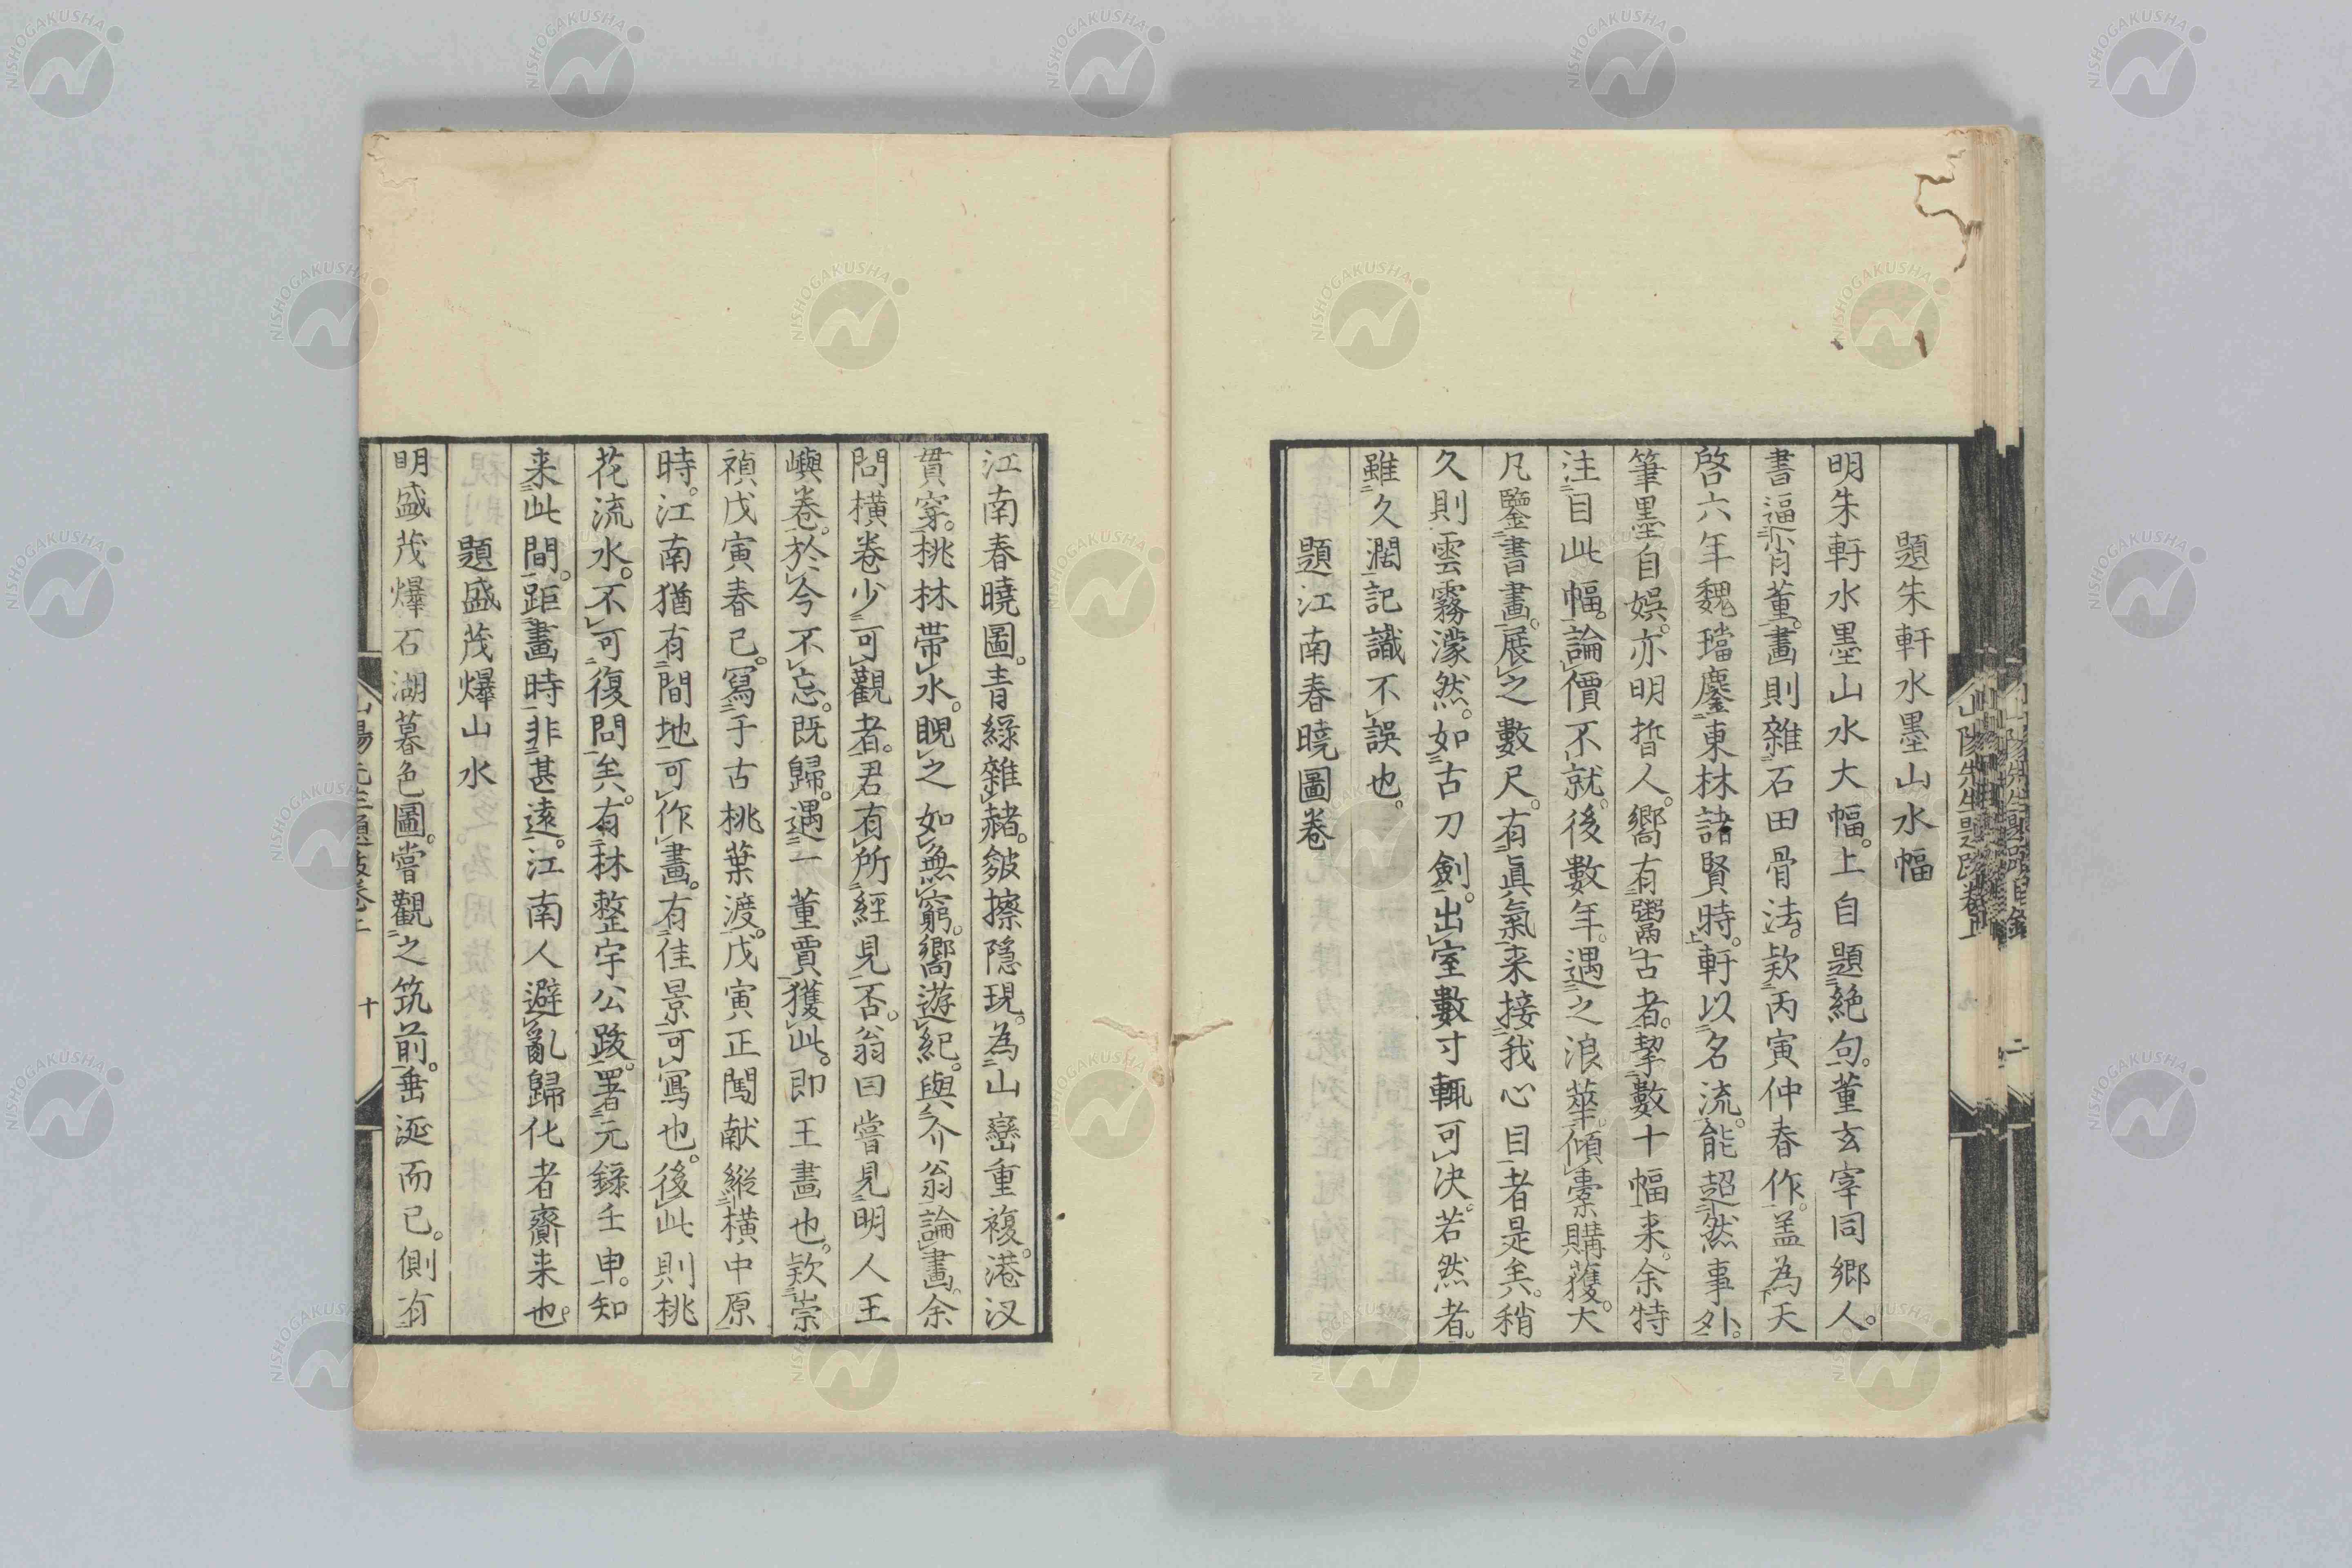 題朱軒水墨山水幅
明朱軒水墨山水大幅。上自題絕句。董玄宰同鄉人。
書逼肖董。畫則雜石田骨法。款丙寅仲春作。盖為天
啓六年魏璫鏖東林諸賢時。軒以名流能超然事外。
筆墨自娯。亦明哲人。嚮有鬻古者。挈數十幅来。余特
注目此幅。論價不就。後數年。遇之浪華。傾橐購獲。大
凡鑒書畫。展之數尺。有眞氣来接我心目者是矣。稍
久則雲霧濛然。如古刀劍。出室數寸輒可決。若然者。
雖久濶記識不誤也。
題江南春曉圖卷
江南春曉圖。青綠雜赭。皴擦隱現。為山巒重複。港汊
貫穿。桃林帶水。睨之如無窮。嚮遊紀。與介翁論畫。余
問橫卷少可觀者。君有所經見否。翁曰嘗見明人王
嶼卷。於今不忘。既歸。遇一董賈獲此。即王畫也。款崇
禎戊寅春已。寫于古桃葉渡。戊寅正闖献縱橫中原
時。江南猶有間地可作畫。有佳景可寫也。後此則桃
花流水。不可復問矣。有林整宇公跋。署元錄壬申。知
来此間。距畫時非甚遠。江南人避亂歸化者齎来也。
題盛茂爗山水
明盛茂爗石湖暮色圖。嘗觀之筑前。垂涎而已。側有
十
NISHOGAKUSHA